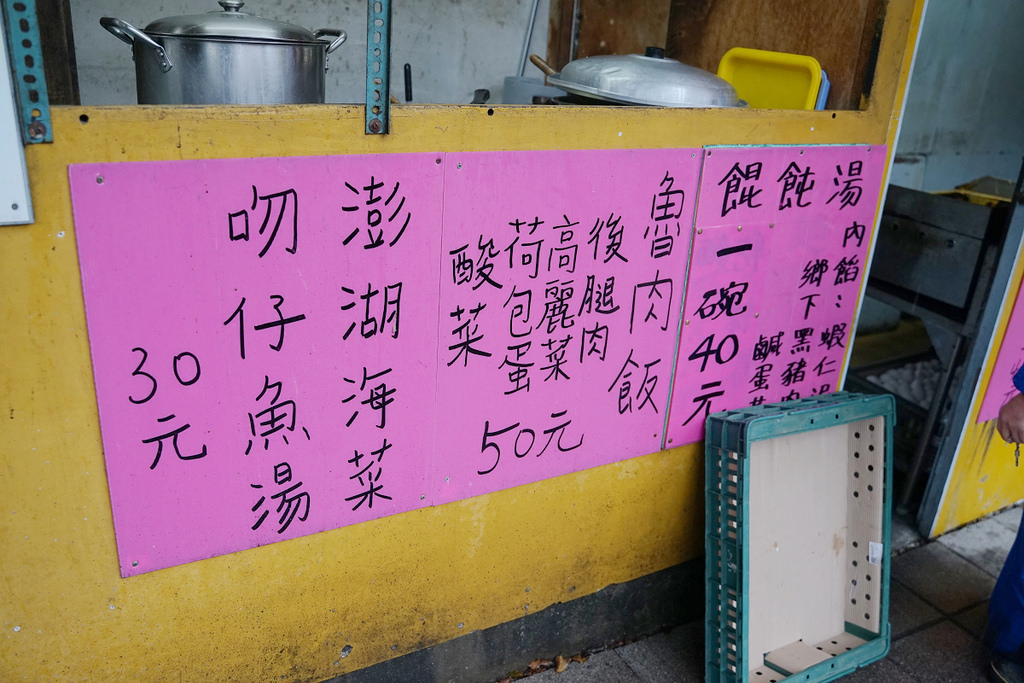 餛飩湯
內餡：蝦仁
鄉下黑豬肉
鹹蛋
一碗40元
魯肉飯
後腿肉
高麗菜
荷包蛋
酸菜
50元
澎湖海菜
吻仔魚湯
30元